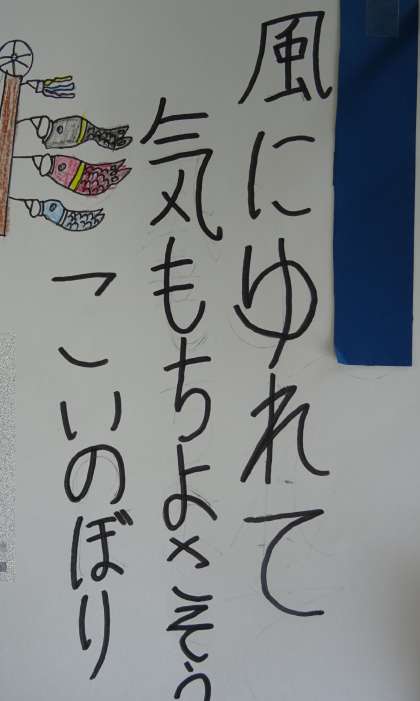 風にゆれて
気もちよさそう
こいのぼり